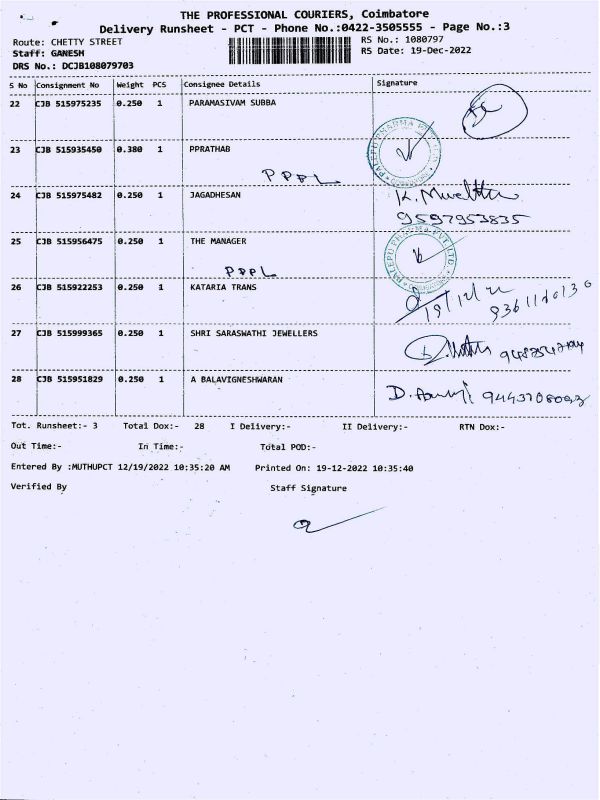 THE PROFESSIONAL COURIERS, Coimbatore
Delivery Runsheet - PCT - Phone No.:0422-3505555 - Page No.:3
Route: CHETTY STREET
RS No.: 1080797
Staff: GANESH
RS Date: 19-Dec-2022
DRS No.: DCJB108079703
S No Consignment No Weight PCS Consignee Details Signature
22 CJB 515975235 0.250 1 PARAMASIVAM SUBBA
23 CJB 515935450 0.380 1 PPRATHAB
PALEPU PHARMA PVT LTD
PPPL
24 CJB 515975482 0.250 1 JAGADHESAN
9597953835
25 CJB 515956475 0.250 1 THE MANAGER
PALEPU PHARMA PVT LTD
PPPL
26 CJB 515922253 0.250 1 KATARIA TRANS
19/12/22
27 CJB 515999365 0.250 1 SHRI SARASWATHI JEWELLERS
28 CJB 515951829 0.250 1 A BALAVIGNESHWARAN
Tot. Runsheet:- 3 Total Dox:- 28 I Delivery:- II Delivery:- RTN Dox:-
Out Time:- In Time:- Total POD:-
Entered By :MUTHUPCT 12/19/2022 10:35:20 AM Printed On: 19-12-2022 10:35:40
Verified By Staff Signature